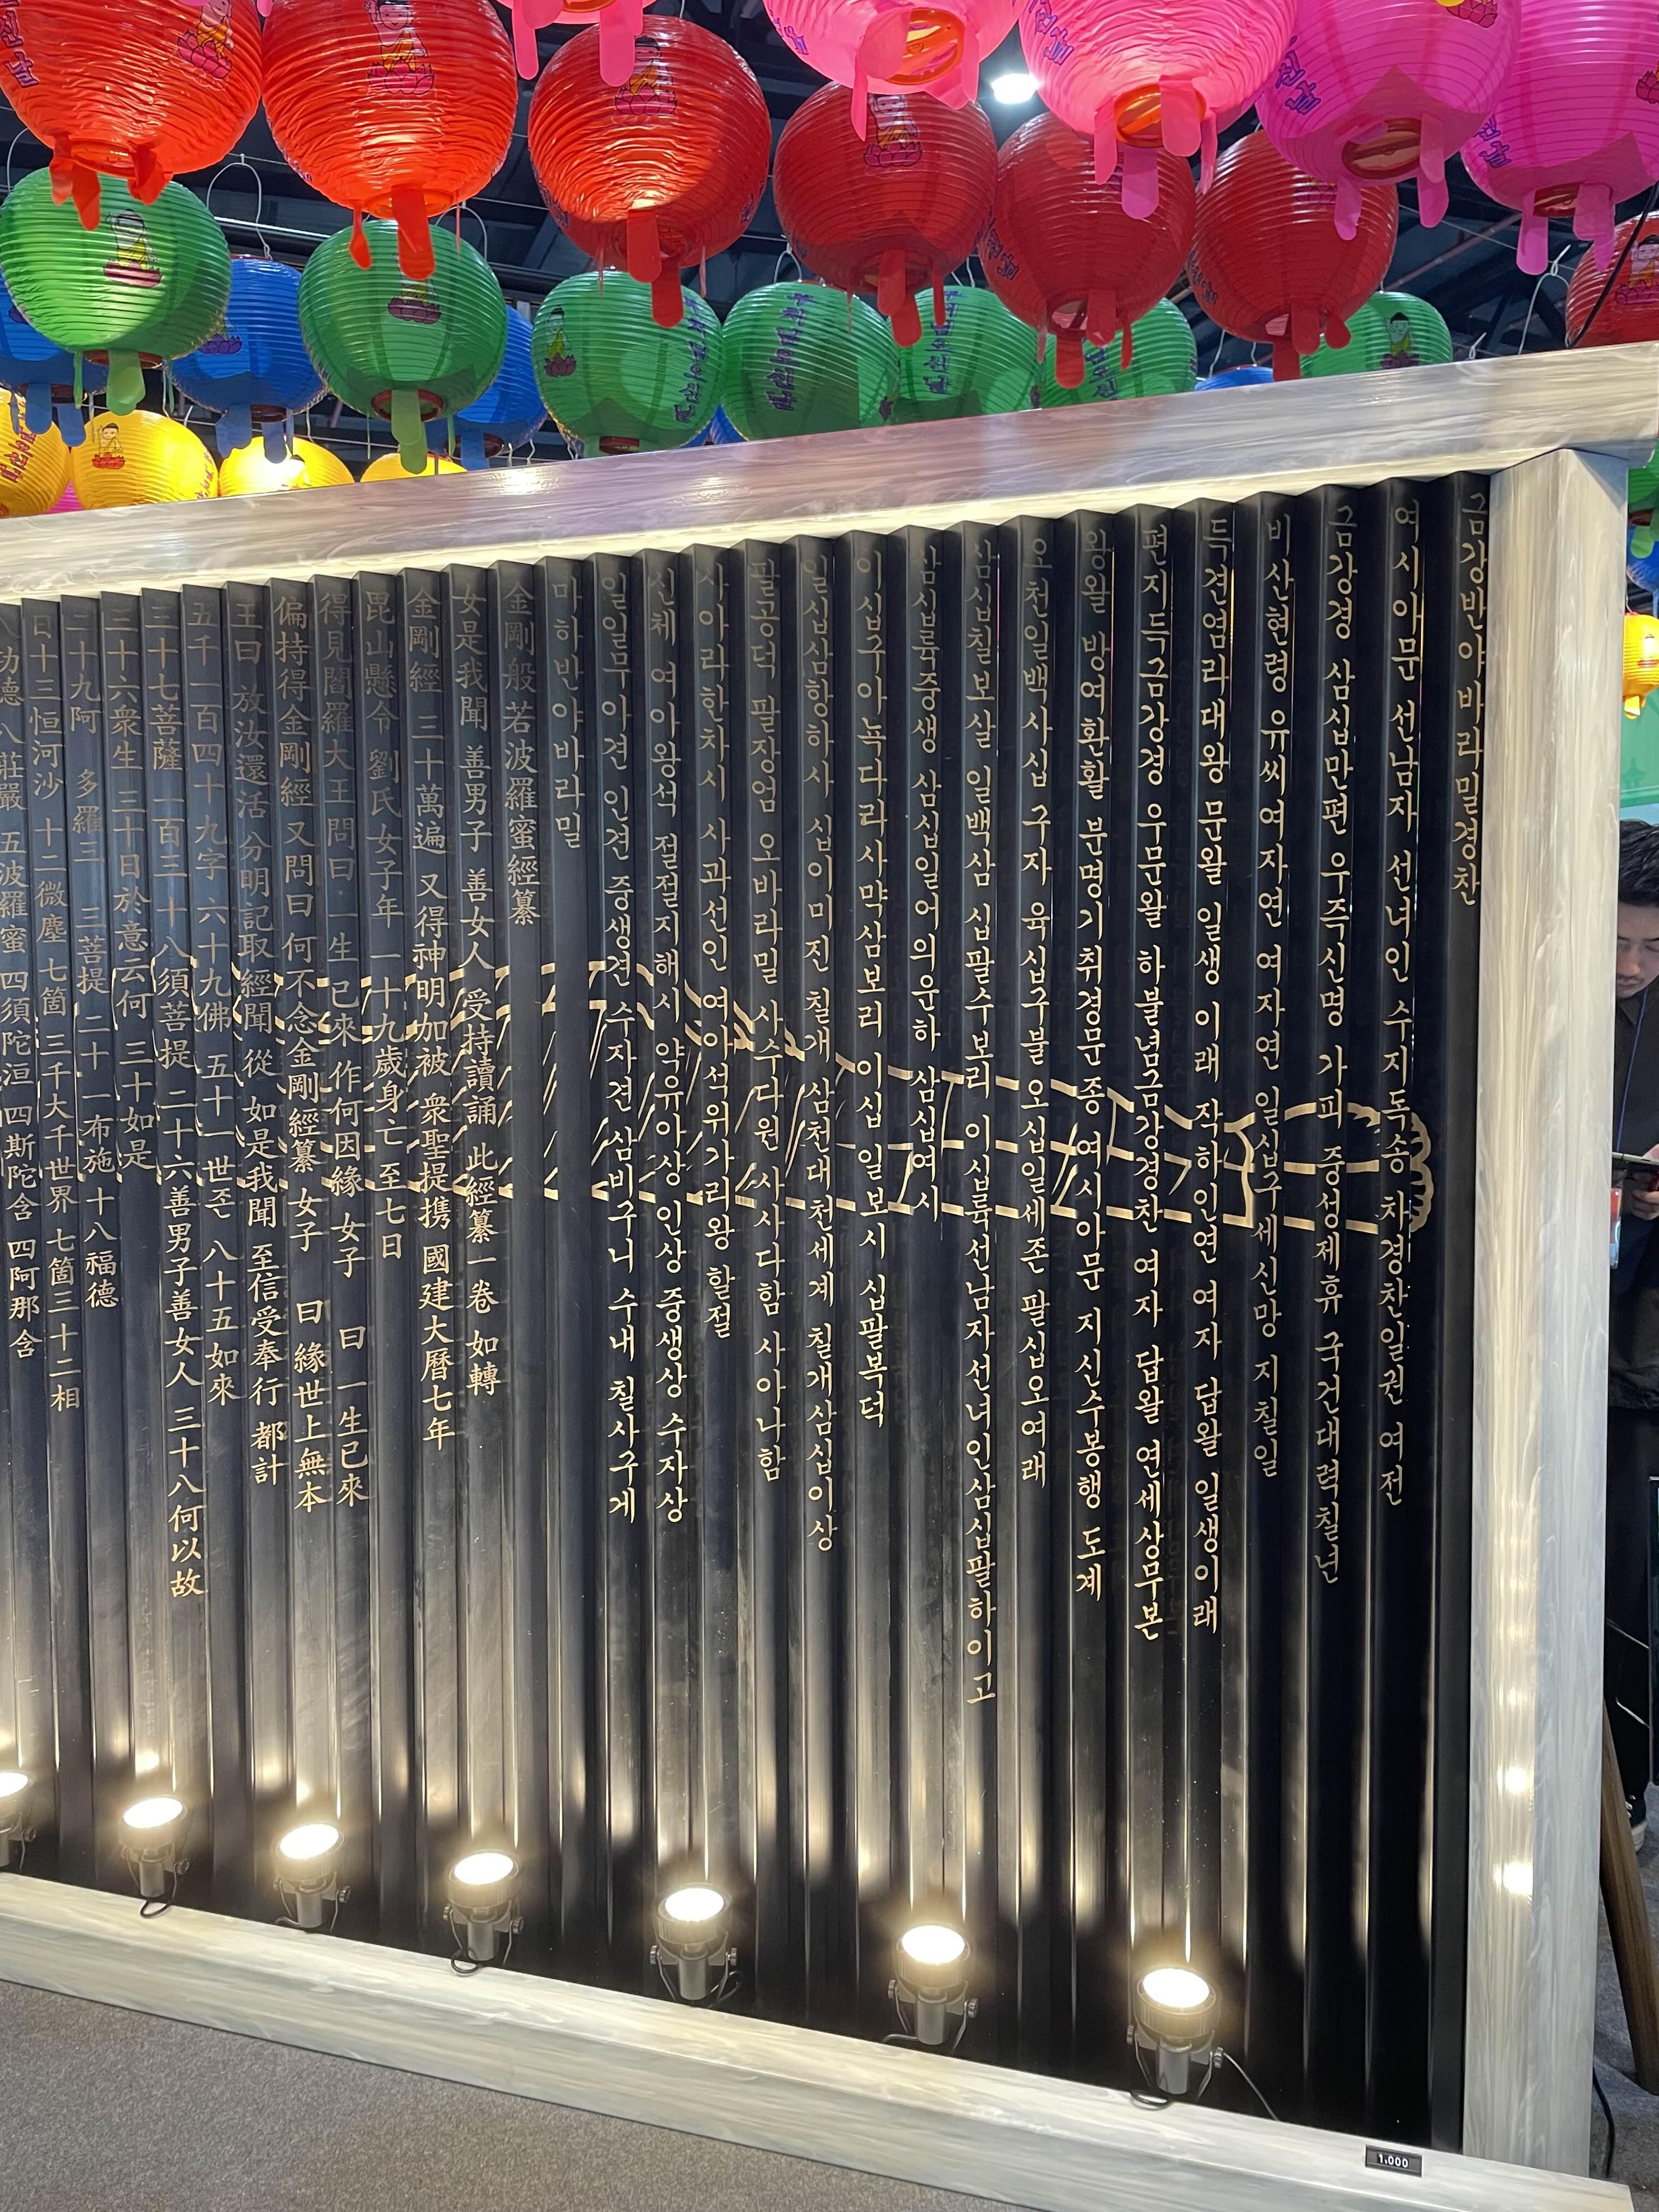 금강반야바라밀경찬
여시아문 선남자 선녀인 수지독송 차경찬일권 여전
금강경 삼십만편 우즉신명 가피 중성제휴 국건대력칠년
비산현령 유씨여자연 여자연 일십구세신망 지칠일
득견염라대왕 문왈 일생 이래 작하인연 여자 답왈 일생이래
편지득금강경 우문왈 하불념금강경찬 여자 답왈 연세상무본
왕왈 방여환활 분명기취경문종 여시아문 지신수봉행 도계
오천일백사십 구자 육십구불 오십일세존 팔십오여래
삼십칠보살 일백삼 십팔수보리 이십륙선남자선녀인삼십팔하이고
삼십륙중생 삼십일어의운하 삼십여시
이십구아뇩다라사먁삼보리 이십 일보시 십팔복덕
일십삼항하사 십이미진 칠개 삼천대천세계 칠개삼십이상
팔공덕 팔장엄 오바라밀 사수다원 사사다함 사아나함
사아라한차시 사과선인 여아석위가리왕 할절
신체 여아왕석 절절지해시 약유아상 인상 중생상 수자상
일일무아견 인견 중생견 수자견 삼비구니 수내 칠사구게
마하반야바라밀
金剛般若波羅蜜經纂
女是我聞 善男子 善女人 受持讀誦 此經纂一卷 如轉
金剛經 三十萬遍 又得神明加被 衆聖提携 國建大曆七年
毘山懸令 劉氏女子年 一十九歲身亡 至七日
得見閻羅大王問曰 一生 已來 作何因緣 女子 曰 一生已來
偏持得金剛經 又問曰 何不念金剛經纂 女子 曰 緣世上無本
王曰 放汝還活 分明記取經聞 從 如是我聞 至信受奉行 都計
五千一百四十九字 六十九佛 五十一世존 八十五如來
三十七菩薩 一百三十八須菩提 二十六善男子善女人 三十八何以故
三十六衆生 三十日於意云何 三十如是
二十九阿 多羅三 三菩提 二十一布施 十八福德
日十三恒河沙 十二微塵 七箇 三千大千世界 七箇三十二相
八功德 八莊嚴 五波羅蜜 四須陀洹 四斯陀含 四阿那含
1,000